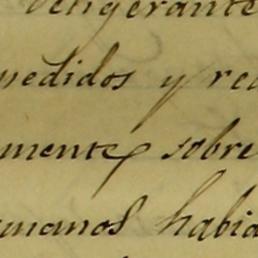 beligerante
medidos y rec
mente sobre
rmanos habia